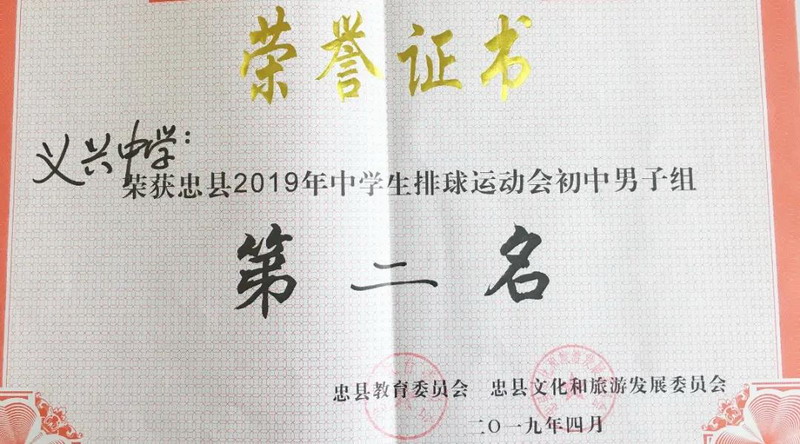 荣誉证书
义兴中学:
荣获忠县2019年中学生排球运动会初中男子组
第二名
忠县教育委员会 忠县文化和旅游发展委员会
二〇一九年四月